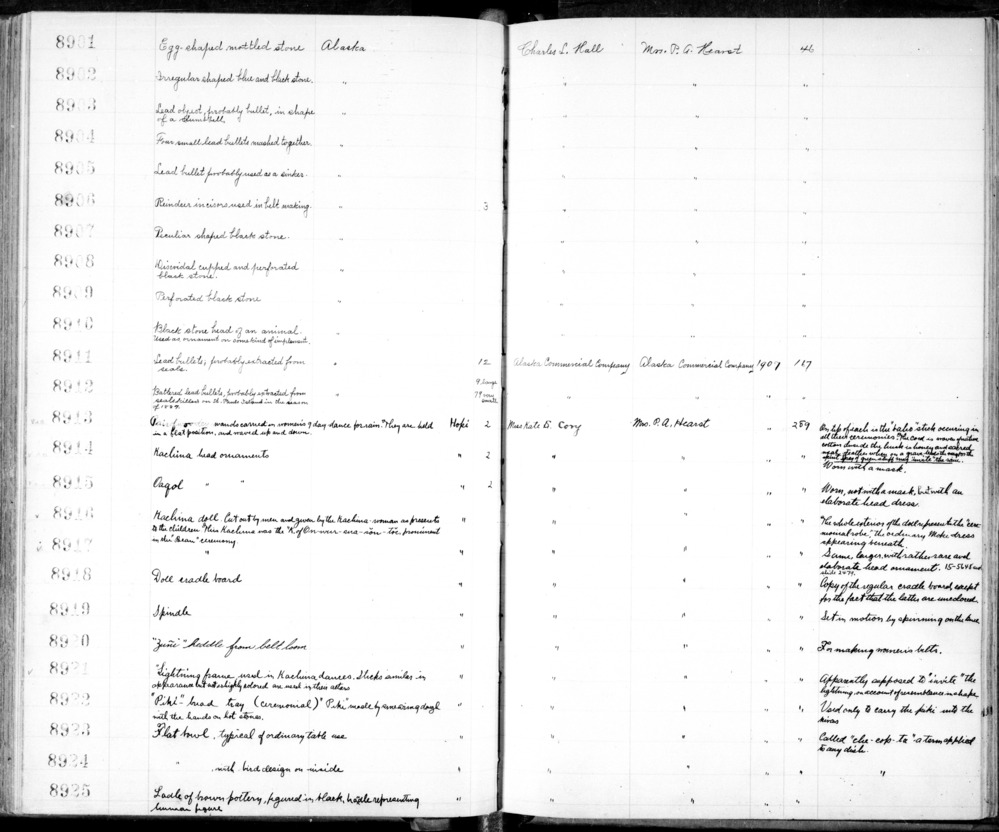 8901 Egg-shaped mottled stone Alaska Charles L. Hall Mrs. P. A. Hearst 46
8902 Irregular shaped blue and black stone. " " " "
8903 Lead object, probably bullet, in shape " " " "
of a
8904 Four small lead bullets mashed together. " " " "
8905 Lead bullet probably used as a sinker. " " " "
8906 Reindeer incisors used in belt making. " 3 " " "
8907 Peculiar shaped black stone. " " " "
8908 Discoidal cupped and perforated " " " "
black stone.
8909 Perforated black stone " " " "
8910 Black stone head of an animal. " " " "
Used as ornament on some kind of implement.
8911 Lead bullets; probably extracted from " 12 Alaska Commercial Company Alaska Commercial Company 1907 117
seals.
8912 Battered lead bullets, probably extracted from " 9 large " " "
seals killed on St. Pauls Island in the season 79 very
of 18 small
8913 wands carried in women's 9 day dance for rain. "They are held Hopi 2 Miss Kate D. Cory Mrs. P. A. Hearst " 289 On tip of each is the "baho" stick occurring in
in a flat position, and waved up and down. all their ceremonies. The cord is woven of native
cotton
8914 Kachina head ornaments " 2 " " " "
Worn with a mask.
8915 Oaqol " " " 2 " " " " Worn, not with a mask, but with an
elaborate head dress.
8916 Kachina doll. Cut out by men and given by the Kachina-woman as presents " " " " " "The whole exterior of the doll represents the "cere-
to the children. This Kachina was the "K of prominent monial robe", the ordinary Moki dress
in the "Bean" ceremony appearing beneath.
8917 " " " " " " Same, larger, with rather rare and
elaborate head ornament. 15-5645 and
slide
8918 Doll cradle board " " " " " Copy of the regular cradle board, except
for the fact that the latter are uncolored.
8919 Spindle " " " " " Set in motion by spinning on the knee
8920 "Zuñi" heddle from belt loom " " " " " For making women's belts.
8921 "Lightning frame, used in Kachina dances. Sticks similar in " " " " " Apparently supposed to "invite" the
appearance but not slightly colored are used in these others lightning, on account of resemblance in shape
8922 "Piki"- bread tray (ceremonial) "Piki" made by smearing dough " " " " " Used only to carry the piki into the
with the hands on hot stones. kivas
8923 Flat bowl, typical of ordinary table use " " " " " Called "che-cop-ta" - a term applied
to any dish.
8924 " , with bird design on inside " " " " " "
8925 Ladle of brown pottery, figured in black, handle representing " " " " "
human figure